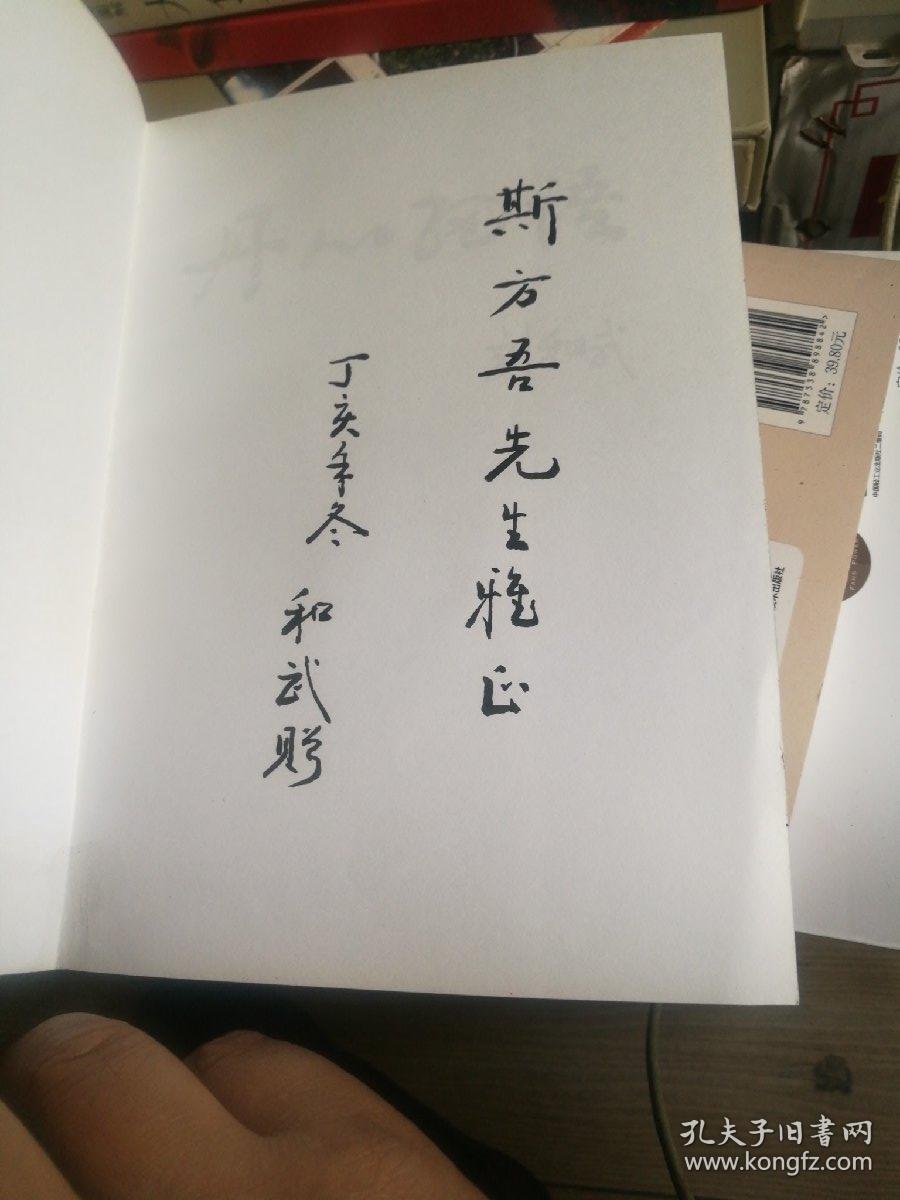 斯方吾先生雅正
丁亥年冬 和武贈
9 787533 898842
定价：39.80元
孔夫子旧书网
www.kongfz.com